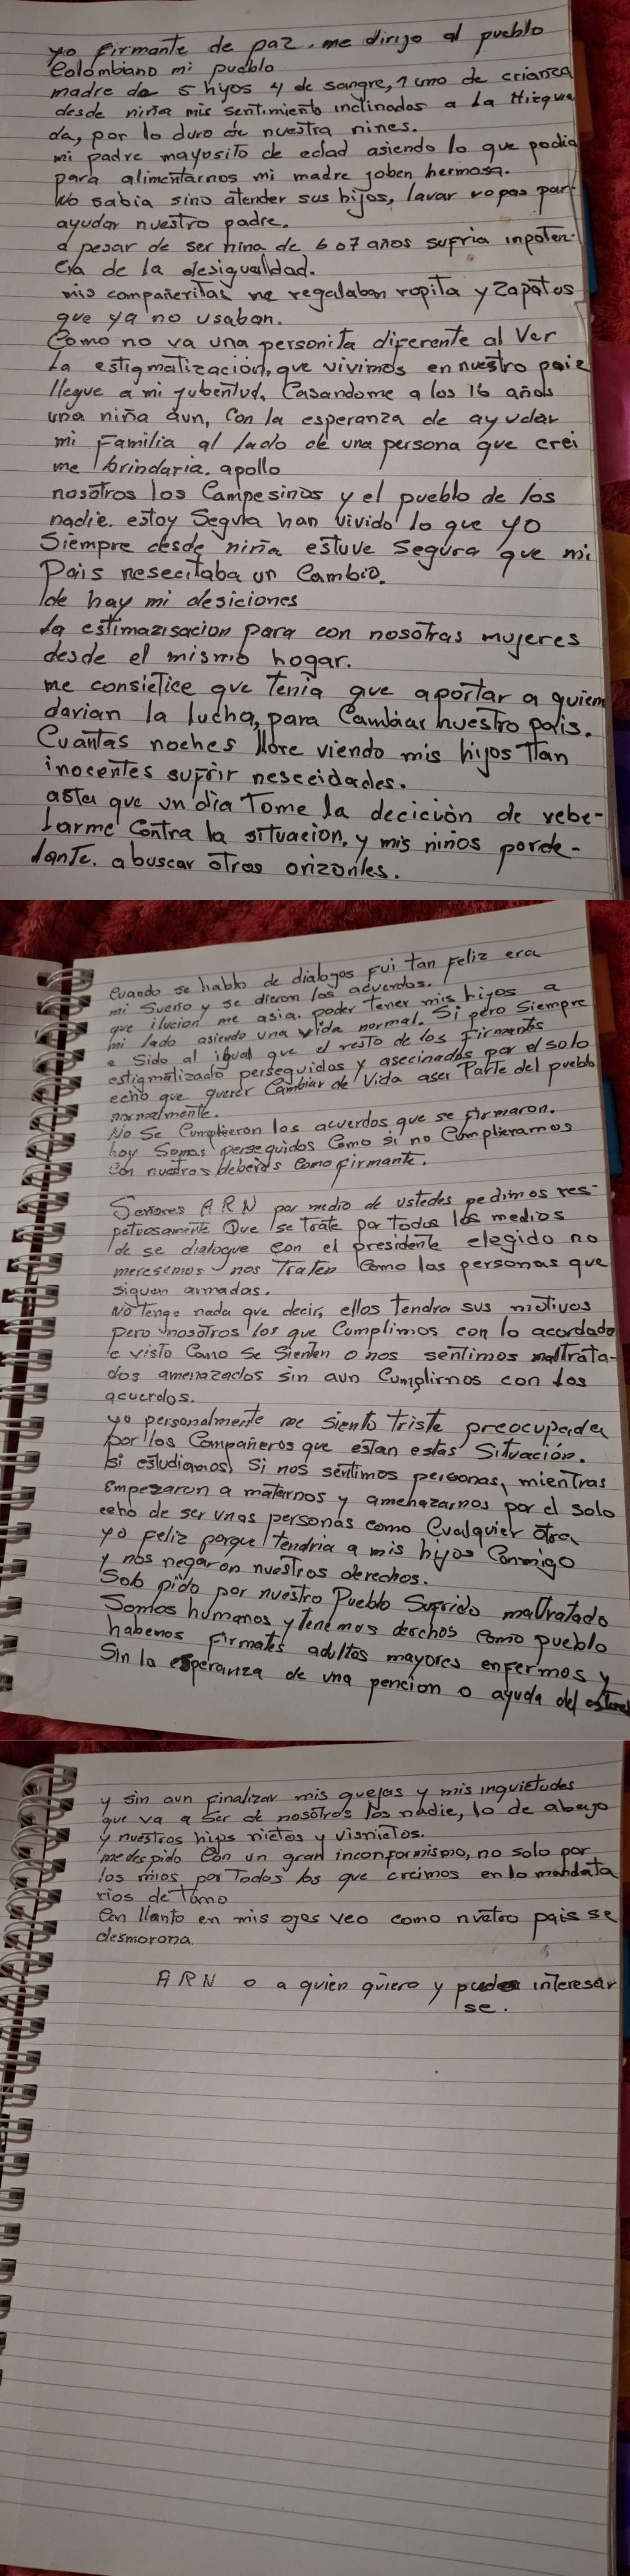 yo firmante de paz. me dirijo al pueblo
Colombiano mi pueblo
madre de 5 hijos 4 de sangre, 1 uno de crianza
desde niña mis sentimiento inclinados a la Hizquie
da, por lo duro de nuestra nines.
mi padre mayosito de edad asiendo lo que podia
para alimentarnos mi madre joben hermosa.
No sabia sino atender sus hijos, lavar ropas para
ayudar nuestro padre.
a pesar de ser nina de 6 o 7 años sufria inpoten-
cia de la desigualdad.
mis compañeritas me regalaban ropita y zapatos
que ya no usaban.
Como no va una personita diferente al Ver
la estigmatización, que vivimos en nuestro pais
llegue a mi jubentud, Casandome a los 16 años
una niña aun, Con la esperanza de ayudar
mi Familia al lado de una persona que crei
me brindaria. apollo
nosotros los Campesinos y el pueblo de los
nadie. estoy Segura han vivido lo que yo
Siempre desde niña estuve segura que mi
Pais nesecitaba un Cambio.
de hay mi desiciones
la estimazisacion para con nosotras mujeres
desde el mismo hogar.
me consietice que Tenia que aportar a quien
davian la lucha, para Cambiar nuestro pais.
Cuantas noches llore viendo mis hijos Tlan
inocentes sufrir neseeidades.
asta que un dia Tome la decición de rebe-
larme Contra la situacion, y mis niños porde-
lante. a buscar otros orizontes.
Cuando se hablo de dialogos Fui tan Feliz era
mi Sueño y se dieron los acuerdos.
que ilucion me asia. poder Tener mis hijos a
mi lado asiendo una vida normal. Si pero Siempre
e Sido al igual que el resto de los Firmantes
estigmatizado perseguidos y asecinados por el solo
echo que querer Cambiar de Vida aser Parte del pueblo
normalmente.
No Se Cumplieron los acuerdos que se firmaron.
hoy Somos perseguidos Como si no Cumplieramos
Con nuestros deberes Como firmante.
Señores ARN por medio de ustedes pedimos res-
petuosamente Que se trate por todos los medios
de se dialogue con el presidente elegido no
meresemos nos Traten Como las personas que
siguen armadas.
No Tengo nada que decir, ellos tendra sus motivos
pero nosotros los que Cumplimos con lo acordado
e visto Como se Sienten o nos sentimos maltrata-
dos amenazados sin aun Cumplirnos con los
acuerdos.
yo personalmente me Siento Triste preocupada
por los Compañeros que estan estas Situación.
Si estudiamos, Si nos sentimos personas, mientras
Empezaron a matarnos y amenazarnos por el solo
echo de ser unas personas como Cualquier otra
yo Feliz porque Tendria a mis hijos Conmigo
y nos negaron nuestros derechos.
Solo pido por nuestro Pueblo Sufrido maltratado
Somos humanos y Tenemos derchos Como pueblo
habemos Firmates adultos mayores enfermos y
Sin la esperanza de una pencion o ayuda del
y sin aun Finalizar mis quejas y mis inquietudes
que va a ser de nosotros los nadie, lo de abajo
y nuestros hijos nietos y visnietos.
me despido Con un gran inconformismo, no solo por
los mios por Todos los que creimos en lo mandata
rios de Turno
Con llanto en mis ojos veo como nuetro pais se
desmorona.
ARN o a quien quiera y pueda interesar
se.